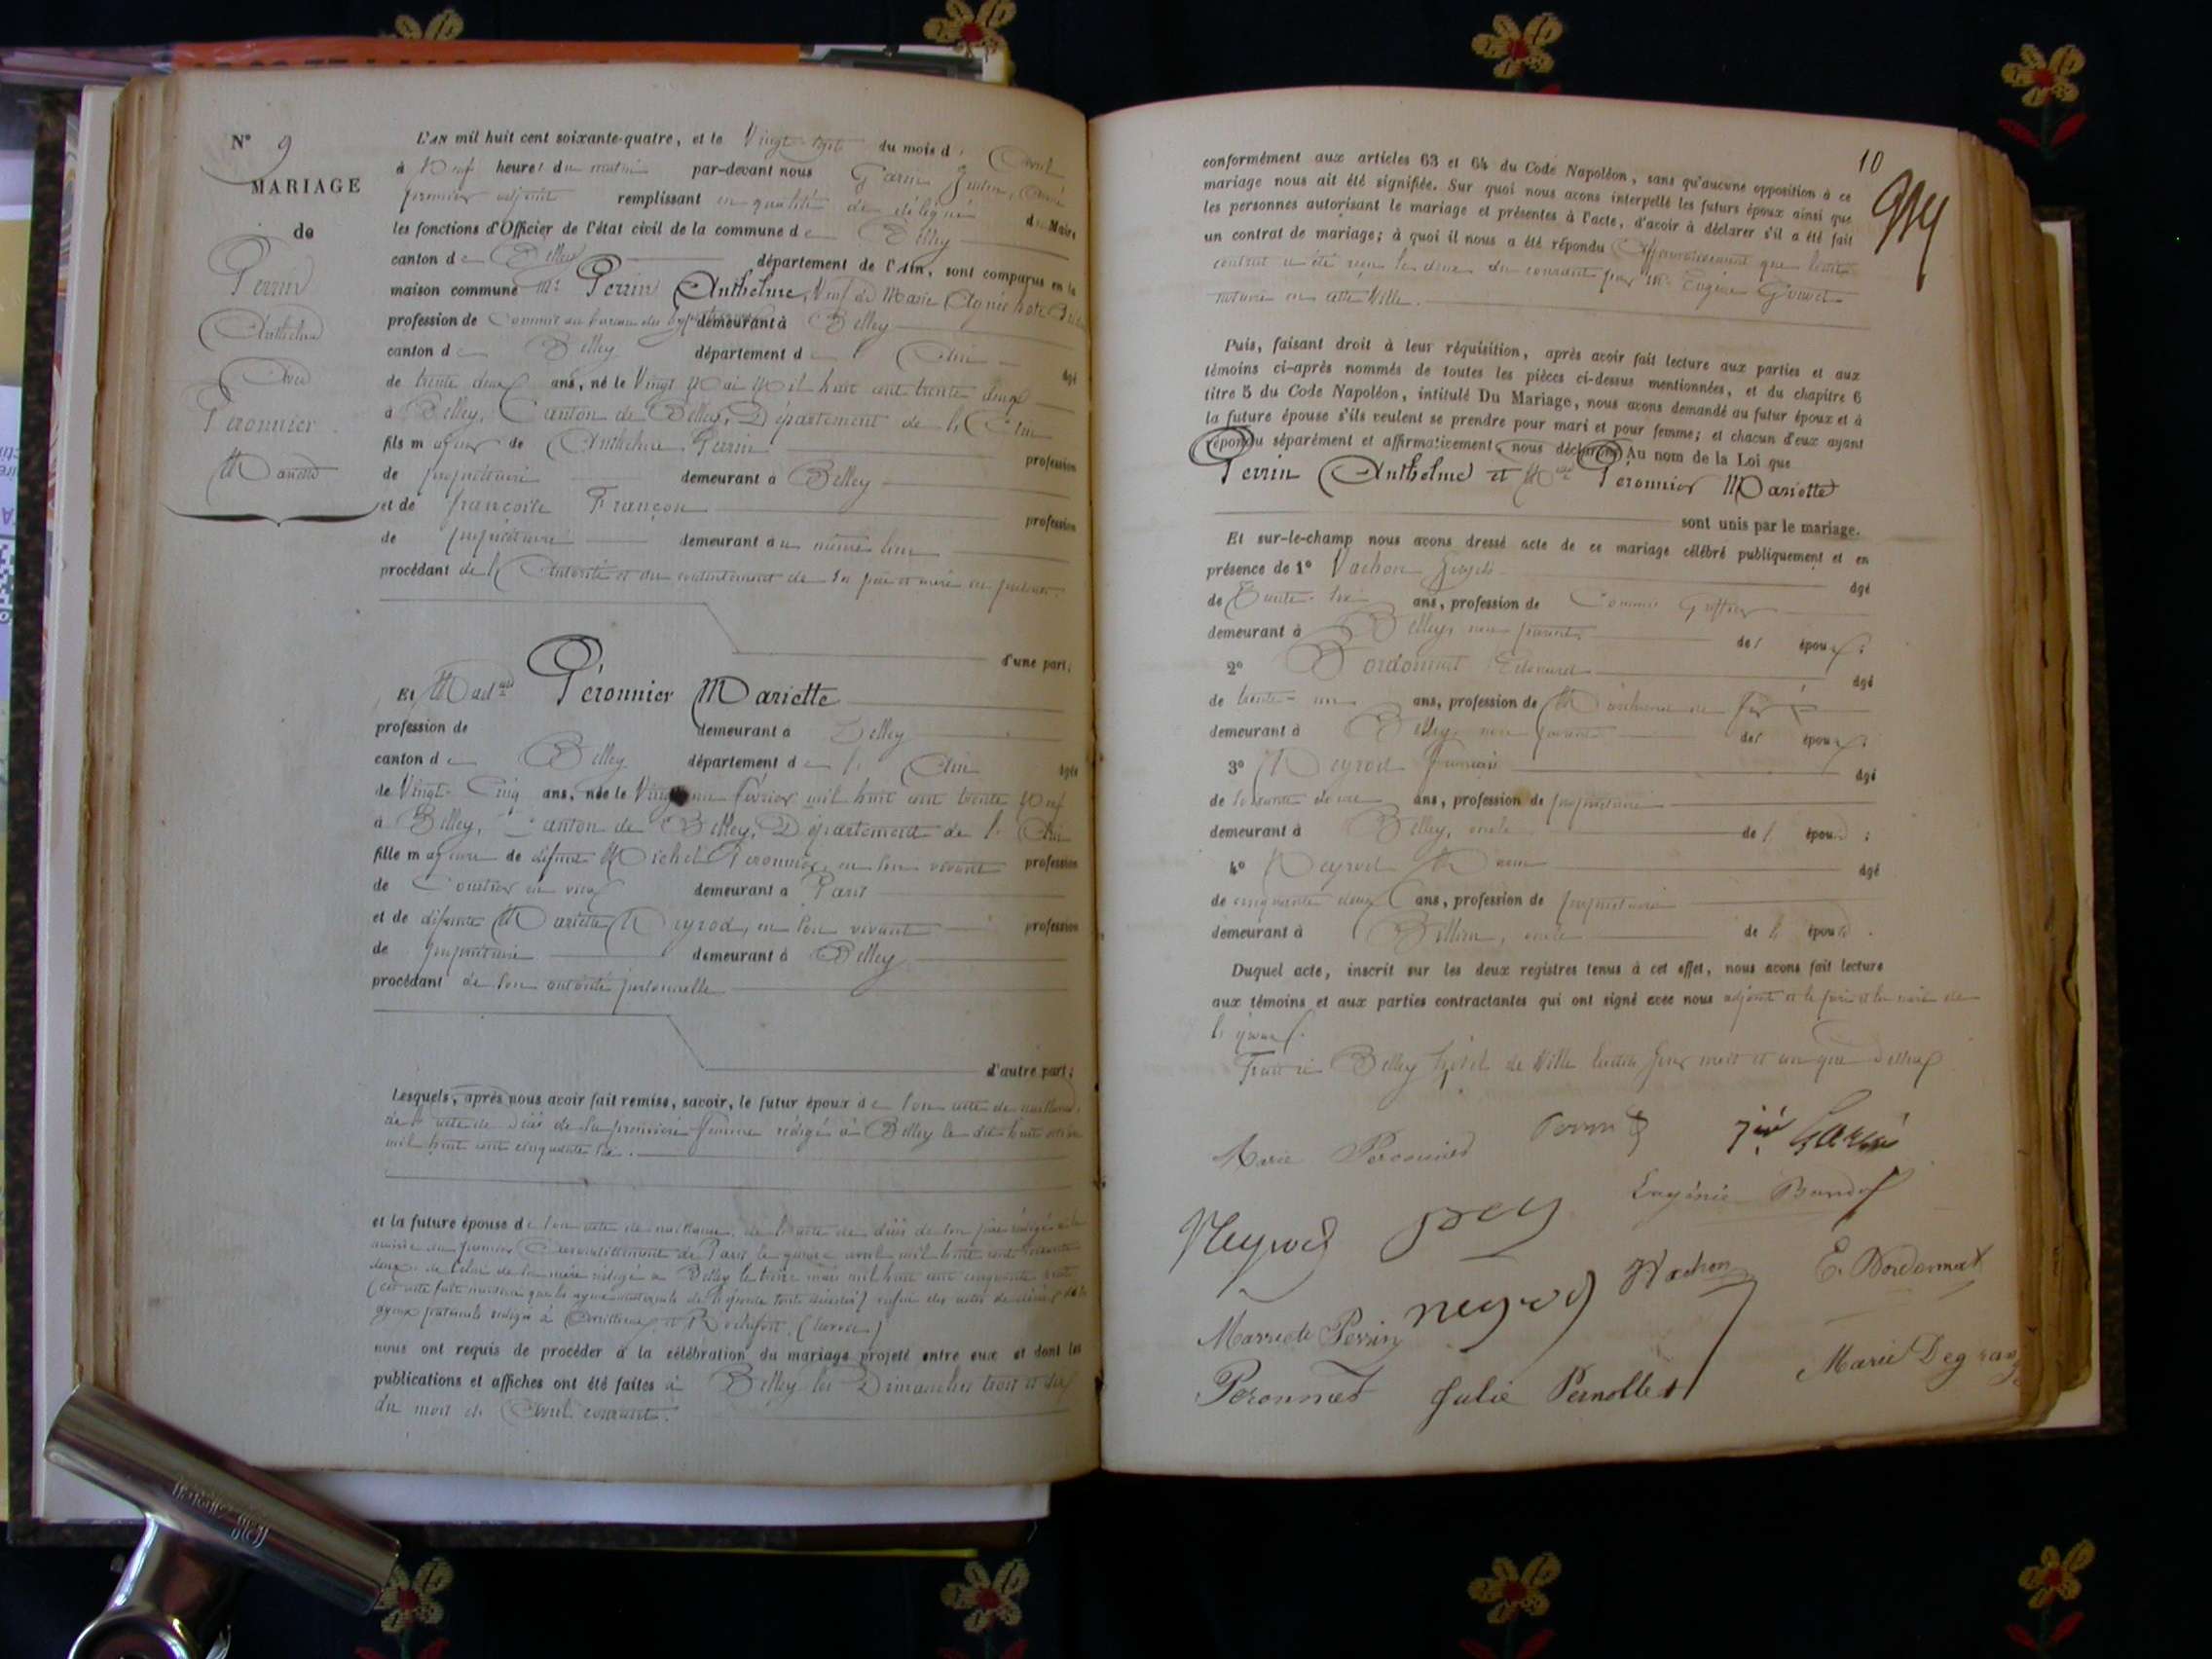 N° 9
MARIAGE
de
Perrin
Anthelme
avec
Peronnier
Mariette
L'AN mil huit cent soixante-quatre, et le Vingt sept du mois d'Avril
à Neuf heures du matin par-devant nous Garin
premier adjoint remplissant en qualité de délégué du Maire
les fonctions d'Officier de l'état civil de la commune de Belley
canton de Belley département de l'Ain, sont comparus en la
maison commune Mr Perrin Anthelme, Veuf de Marie Agnès
profession de Commis au bureau des hypothèques demeurant à Belley
canton de Belley département de l'Ain âgé
de trente deux ans, né le Vingt Mai Mil huit cent trente
à Belley, Canton de Belley, Département de l'Ain
fils majeur de Anthelme Perrin profession
de propriétaire demeurant à Belley
et de françoise Françon profession
de propriétaire demeurant au même lieu
procédant de l'Autorité et du consentement de ses père et mère ici présents.
d'une part;
Et Madlle Péronnier Mariette
profession de demeurant à Belley
canton de Belley département de l'Ain âgée
de Vingt-Cinq ans, née le Vingt un février mil huit cent trente Neuf
à Belley, Canton de Belley, Département de l'Ain
fille majeure de défunt Michel Peronnier, en son vivant profession
de Courtier en vins demeurant à Paris
et de défunte Mariette Neyrod, en son vivant profession
de propriétaire demeurant à Belley
procédant de son autorité personnelle
d'autre part;
Lesquels, après nous avoir fait remise, savoir, le futur époux de son acte de naissance,
de l'acte de décès de sa première femme rédigé à Belley le dix huit
mil huit cent cinquante
et la future épouse de son acte de naissance, de l'acte de décès de son père rédigé à la
mairie du premier Arrondissement de Paris le quinze avril mil huit cent soixante
deux, de celui de sa mère rédigé à Belley le treize mars mil huit cent cinquante
ayeux paternels rédigés à et Rochefort (Savoie)
nous ont requis de procéder à la célébration du mariage projeté entre eux et dont les
publications et affiches ont été faites à Belley les Dimanches trois et dix
du mois de Avril courant.
10
conformément aux articles 63 et 64 du Code Napoléon, sans qu'aucune opposition à ce
mariage nous ait été signifiée. Sur quoi nous avons interpellé les futurs époux ainsi que
les personnes autorisant le mariage et présentes à l'acte, d'avoir à déclarer s'il a été fait
un contrat de mariage; à quoi il nous a été répondu Affirmativement que leur
contrat a été reçu le deux du courant par Me Eugène
notaire en cette Ville.
Puis, faisant droit à leur réquisition, après avoir fait lecture aux parties et aux
témoins ci-après nommés de toutes les pièces ci-dessus mentionnées, et du chapitre 6
titre 5 du Code Napoléon, intitulé Du Mariage, nous avons demandé au futur époux et à
la future épouse s'ils veulent se prendre pour mari et pour femme; et chacun d'eux ayant
répondu séparément et affirmativement, nous déclarons Au nom de la Loi que
Perrin Anthelme et Mlle Peronnier Mariette
sont unis par le mariage.
Et sur-le-champ nous avons dressé acte de ce mariage célébré publiquement et en
présence de 1° Vachon Joseph âgé
de Trente-six ans, profession de Commis Greffier
demeurant à Belley, non parent des époux;
2° Bordonnat Edouard âgé
de trente-un ans, profession de Marchand de fer
demeurant à Belley non parent des époux;
3° Neyrod François âgé
de soixante ans, profession de propriétaire
demeurant à Belley, oncle de l'épouse;
4° Neyrod âgé
de cinquante deux ans, profession de propriétaire
demeurant à oncle de l'épouse.
Duquel acte, inscrit sur les deux registres tenus à cet effet, nous avons fait lecture
aux témoins et aux parties contractantes qui ont signé avec nous adjoint et le père et la mère de
l'époux.
Fait à Belley hôtel de Ville lesdits jour mois et an que dessus
Marie Peronnier Perrin Garin
Neyrod Eugénie
Neyrod J Vachon E. Bordonnat
Mariette Perrin
Peronnier Julie Pernollet Marie